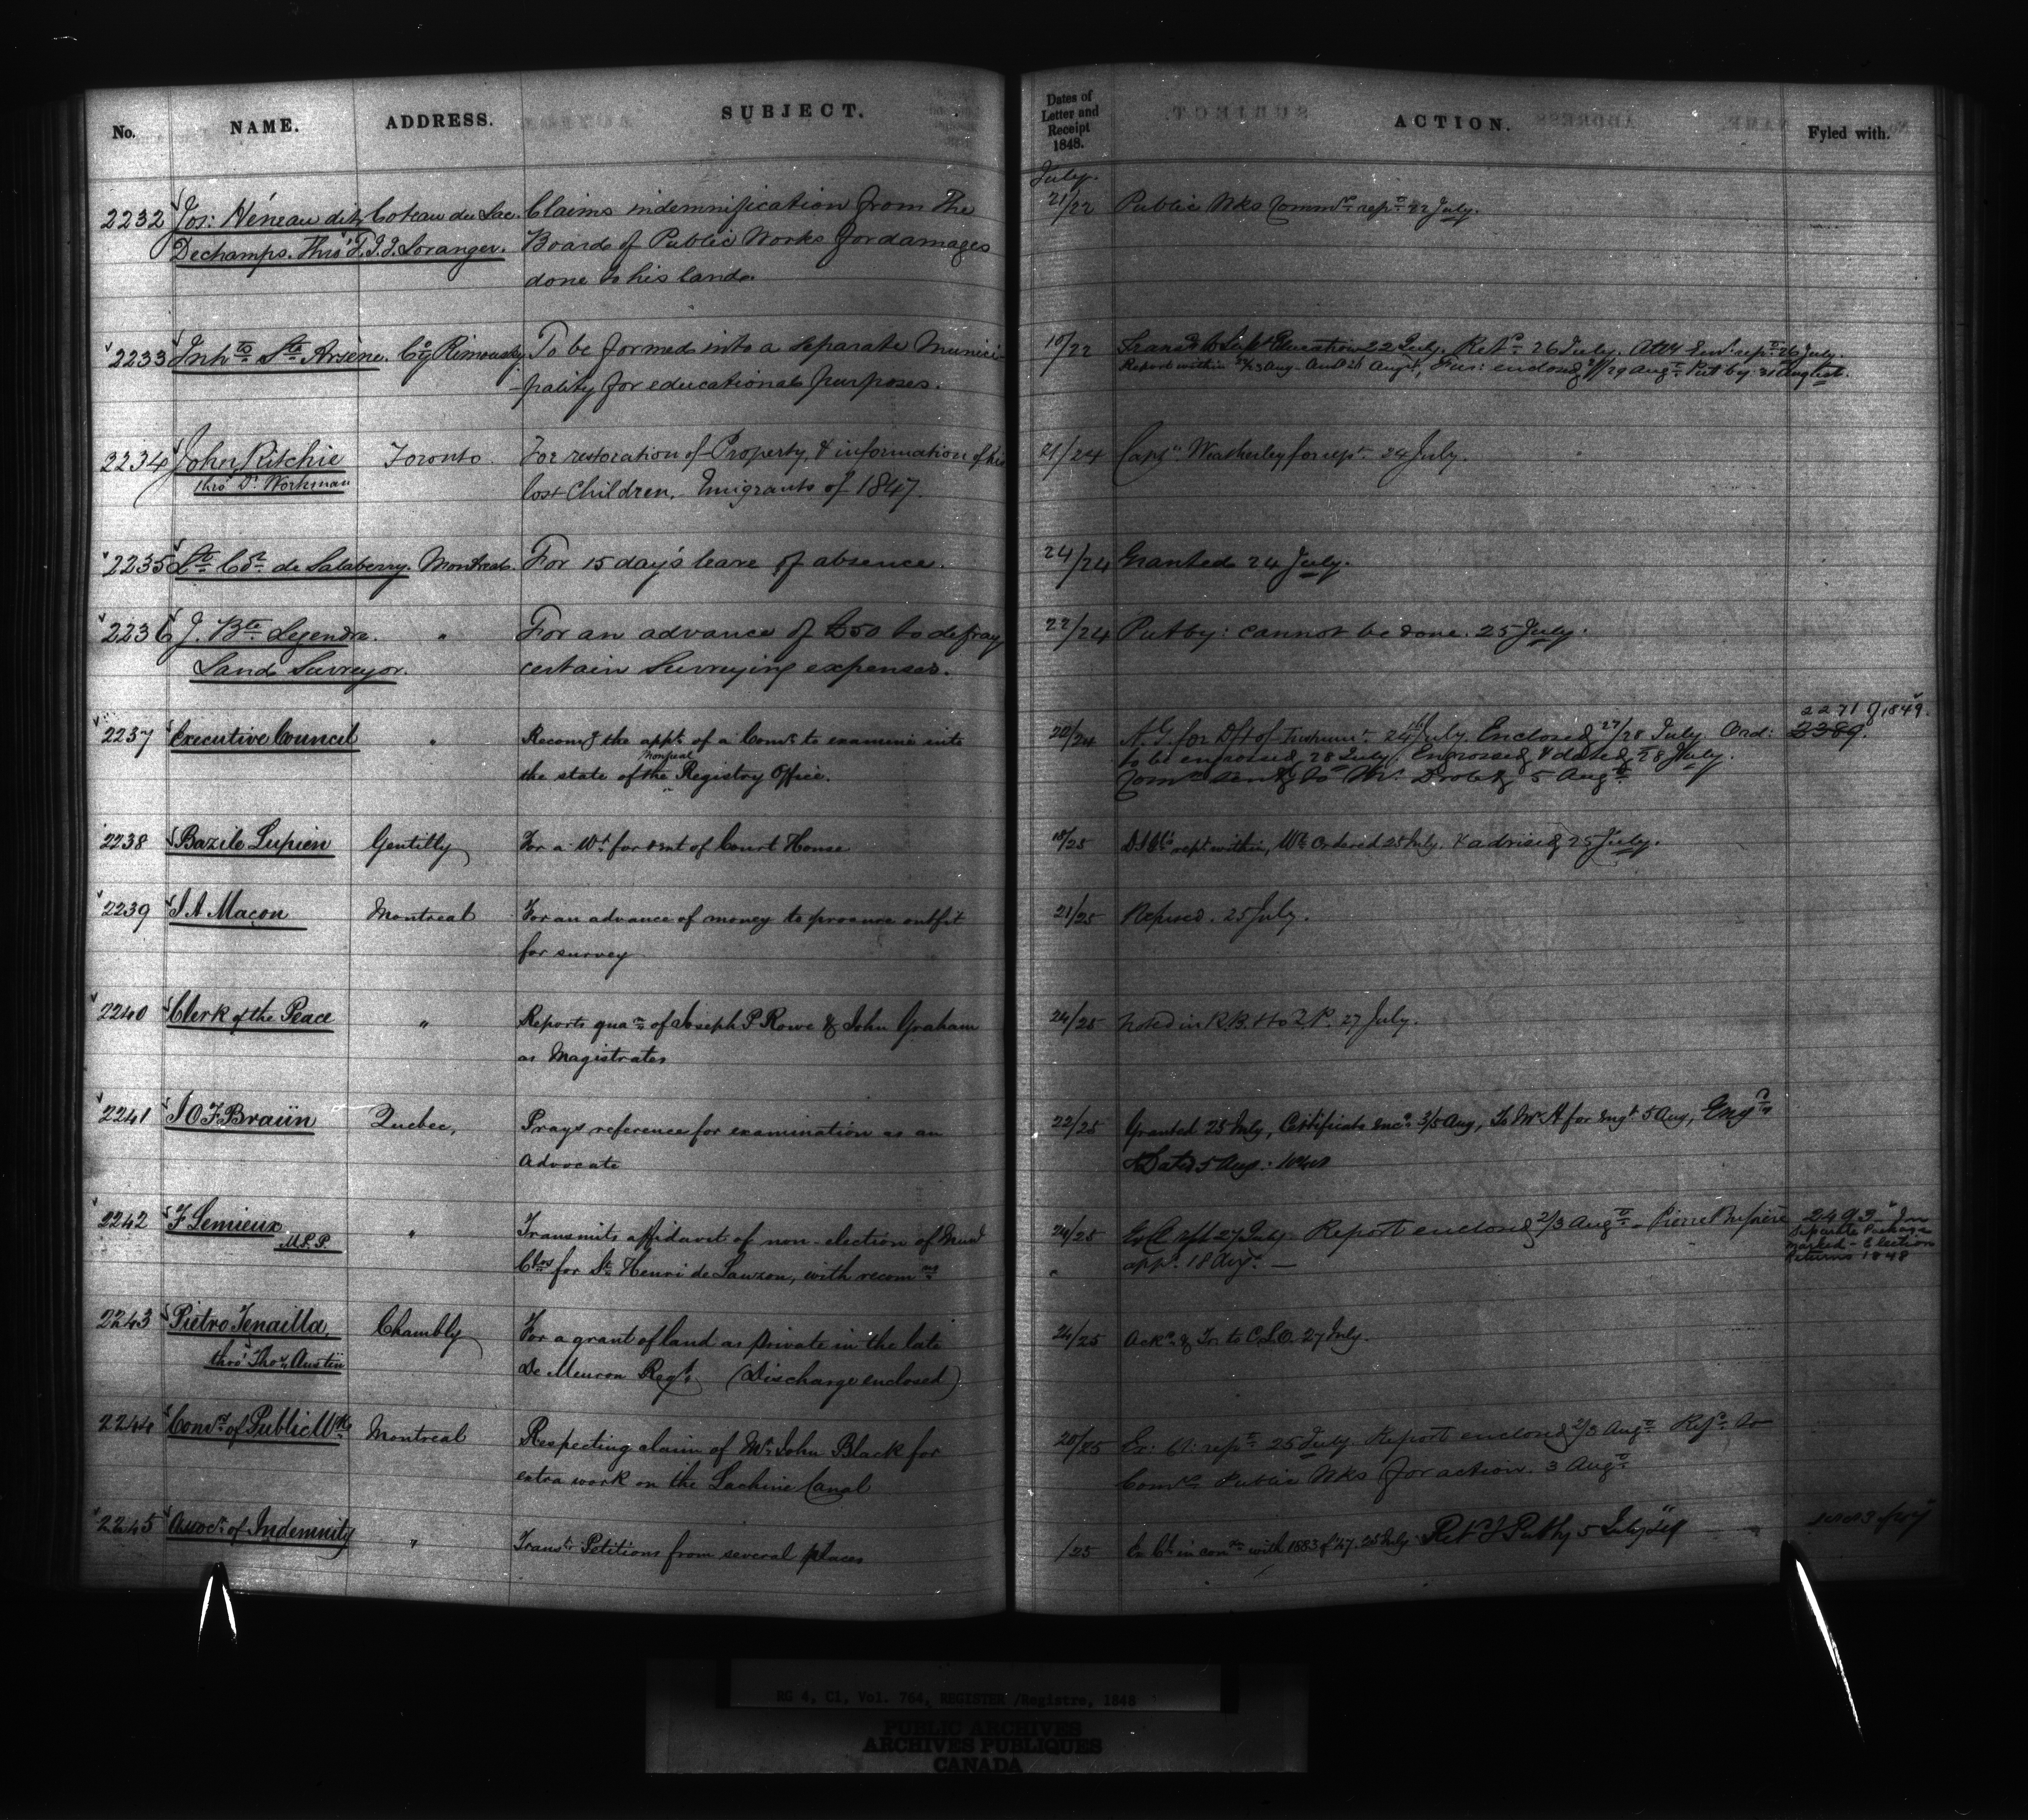 No. NAME. ADDRESS. SUBJECT. Dates of Letter and Receipt 1848. ACTION. Fyled with.
July.
2232 Jos: Héneau dit Coteau du Lac. Claims indemnification from the 21/22 Public Wks Commrs. rept. 22 July.
Dechamps. Thro' T. J. J. Loranger. Board of Public Works for damages
done to his land.
2233 Inhts Ste Arsène. Cty Rimouski To be formed into a separate Munici- 10/22 Education 22 July. Retd. 26 July. rept. 26 July.
-pality for educational purposes. Report within Aug. enclosed 29 Augt. Put by 31 August.
2234 John Ritchie Toronto. For restoration of Property & information of his 21/24 Capt. Weatherley for rept. 24 July.
thro' Dr. Workman lost Children, Emigrants of 1847.
2235 Lt. Col. de Salaberry. Montreal. For 15 day's leave of absence. 24/24 Granted 24 July.
2236 J. Bte. Legendre. " For an advance of £50 to defray 22/24 Put by: cannot be done. 25 July.
Land Surveyor. certain Surveying expenses.
2271 of 1849.
2237 Executive Council " Recomg the appt. of a Comr. to examine into 20/24 A. G. for Dft of Instrumt. 24 July Enclosed 27/28 July. Ord: 3389.
the state of the Montreal Registry Office. to be engrossed 28 July, Engrossed & dated 28 July.
Comn. sent to Mr. 5 Augt.
2238 Bazile Lupien Gentilly For a Wt. for rent of Court House 18/25 rept within, Wt. Ordered 25 July. & advised 25 July.
2239 J A Macon Montreal For an advance of money to procure outfit 21/25 Refused. 25 July.
for survey
2240 Clerk of the Peace " Reports quan. of Joseph P Rowe & John Graham 24/25 Noted in R.B. 27 July.
as Magistrates
2241 J O F Braün Quebec, Prays reference for examination as an 22/25 Granted 25 July, Certificate encd. 3/5 Aug, To Mr A for Engt 5 Aug, Engd.
Advocate & Dated 5 Aug.
2242 F Lemieux " Transmits affidavit of non-election of Municl 24/25 27 July. Report enclosed 2/3 Augt. Pierre 2492 In
M.P.P. Clors for St. Henri de Lauzon, with recomns appd. 18 Augt. Separate Package
marked - Election
Returns 1848
2243 Pietro Tenailla, Chambly For a grant of land as private in the late 24/25 Ackd. & Tr. to C.L.O. 27 July.
thro' Thos. Austin De Meuron Regt. (Discharge enclosed)
2244 Comrs. of Public Wks Montreal Respecting claim of Mr John Black for 20/25 Ex: Cl: rept. 25 July Report enclosed 2/3 Augt. Refd. to
extra work on the Lachine Canal Comrs. Public Wks for action. 3 Augt.
2245 Assocn. of Indemnity " Transt. Petitions from several places /25 Ex Cl. in conn. with 1883 of 47. 25 July Retd & Put by 5 July
RG 4, C1, Vol. 764, REGISTER /Registre, 1848
PUBLIC ARCHIVES
ARCHIVES PUBLIQUES
CANADA